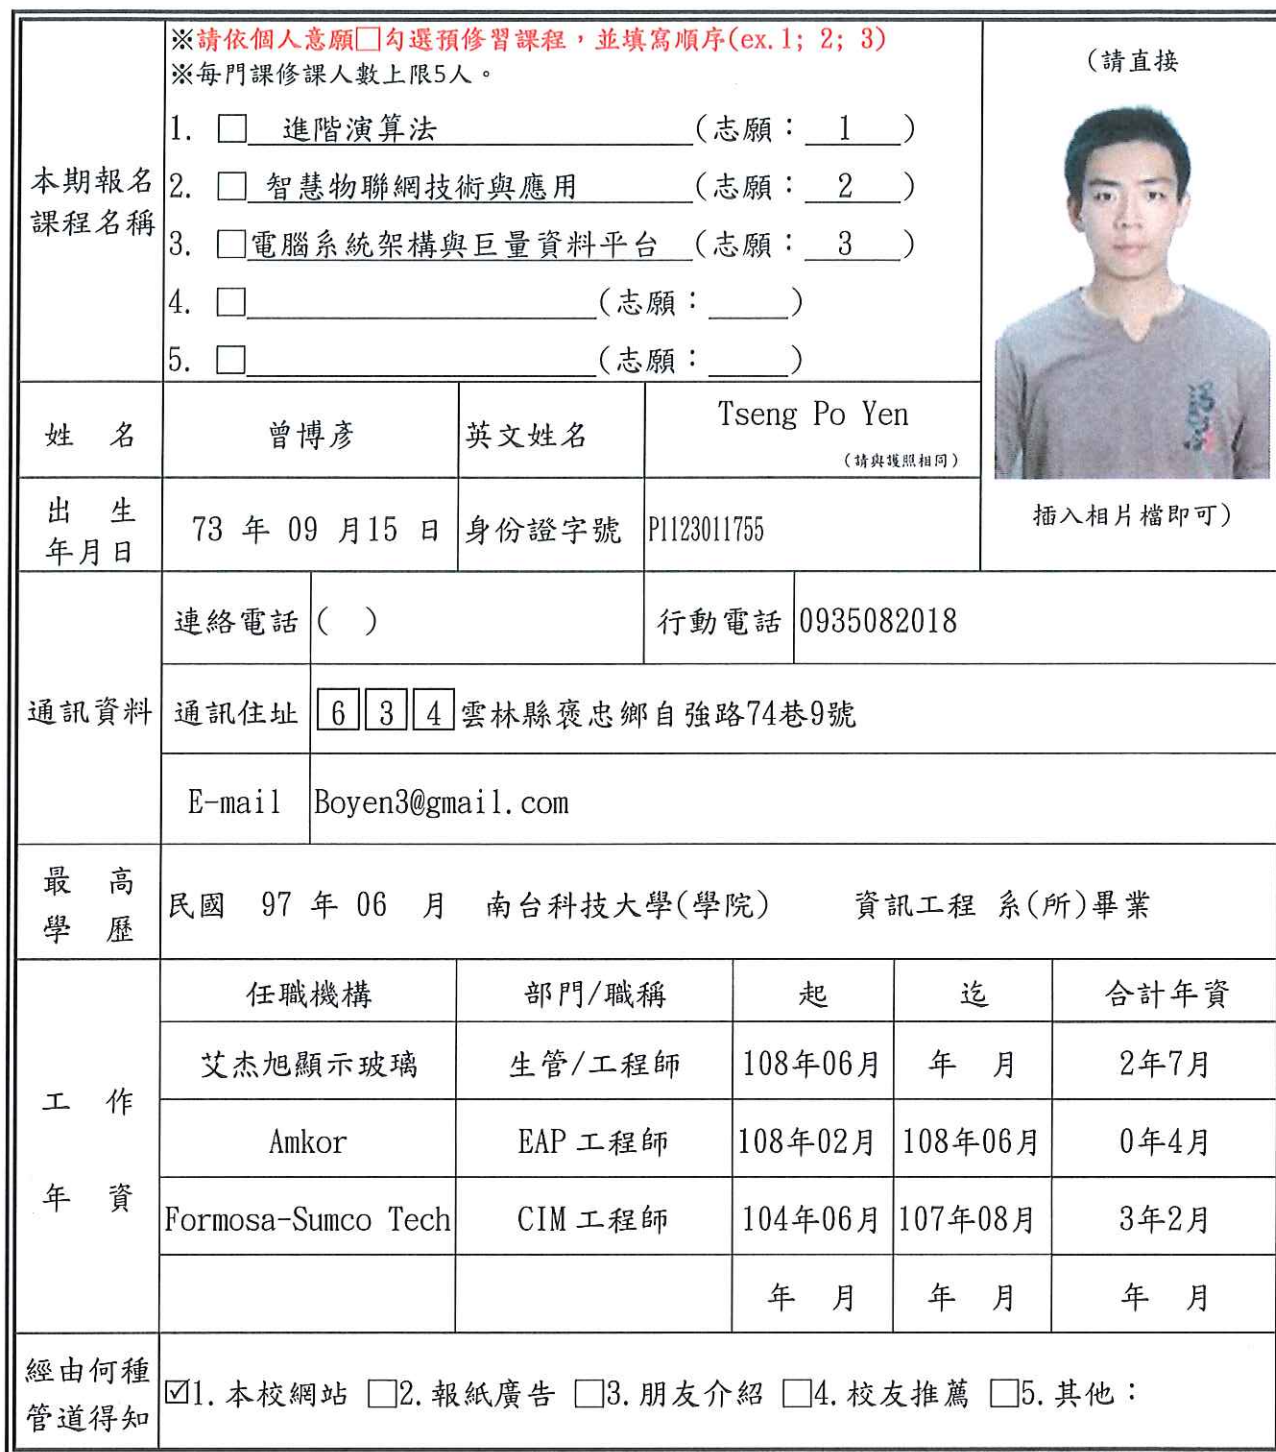 ※請依個人意願□勾選預修習課程，並填寫順序(ex.1; 2; 3)
※每門課修課人數上限5人。
(請直接
本期報名
課程名稱
1. □ 進階演算法 (志願： 1 )
2. □ 智慧物聯網技術與應用 (志願： 2 )
3. □電腦系統架構與巨量資料平台 (志願： 3 )
4. □ (志願： )
5. □ (志願： )
姓 名 曾博彥 英文姓名 Tseng Po Yen
(請與護照相同)
插入相片檔即可)
出 生
年月日
73 年 09 月15 日 身份證字號 P1123011755
通訊資料
連絡電話 ( ) 行動電話 0935082018
通訊住址 634雲林縣褒忠鄉自強路74巷9號
E-mail Boyen3@gmail.com
最 高
學 歷
民國 97 年 06 月 南台科技大學(學院) 資訊工程 系(所)畢業
工 作
年 資
任職機構 部門/職稱 起 迄 合計年資
艾杰旭顯示玻璃 生管/工程師 108年06月 年 月 2年7月
Amkor EAP 工程師 108年02月 108年06月 0年4月
Formosa-Sumco Tech CIM 工程師 104年06月 107年08月 3年2月
年 月 年 月 年 月
經由何種
管道得知
☑1.本校網站 □2.報紙廣告 □3.朋友介紹 □4.校友推薦 □5.其他：